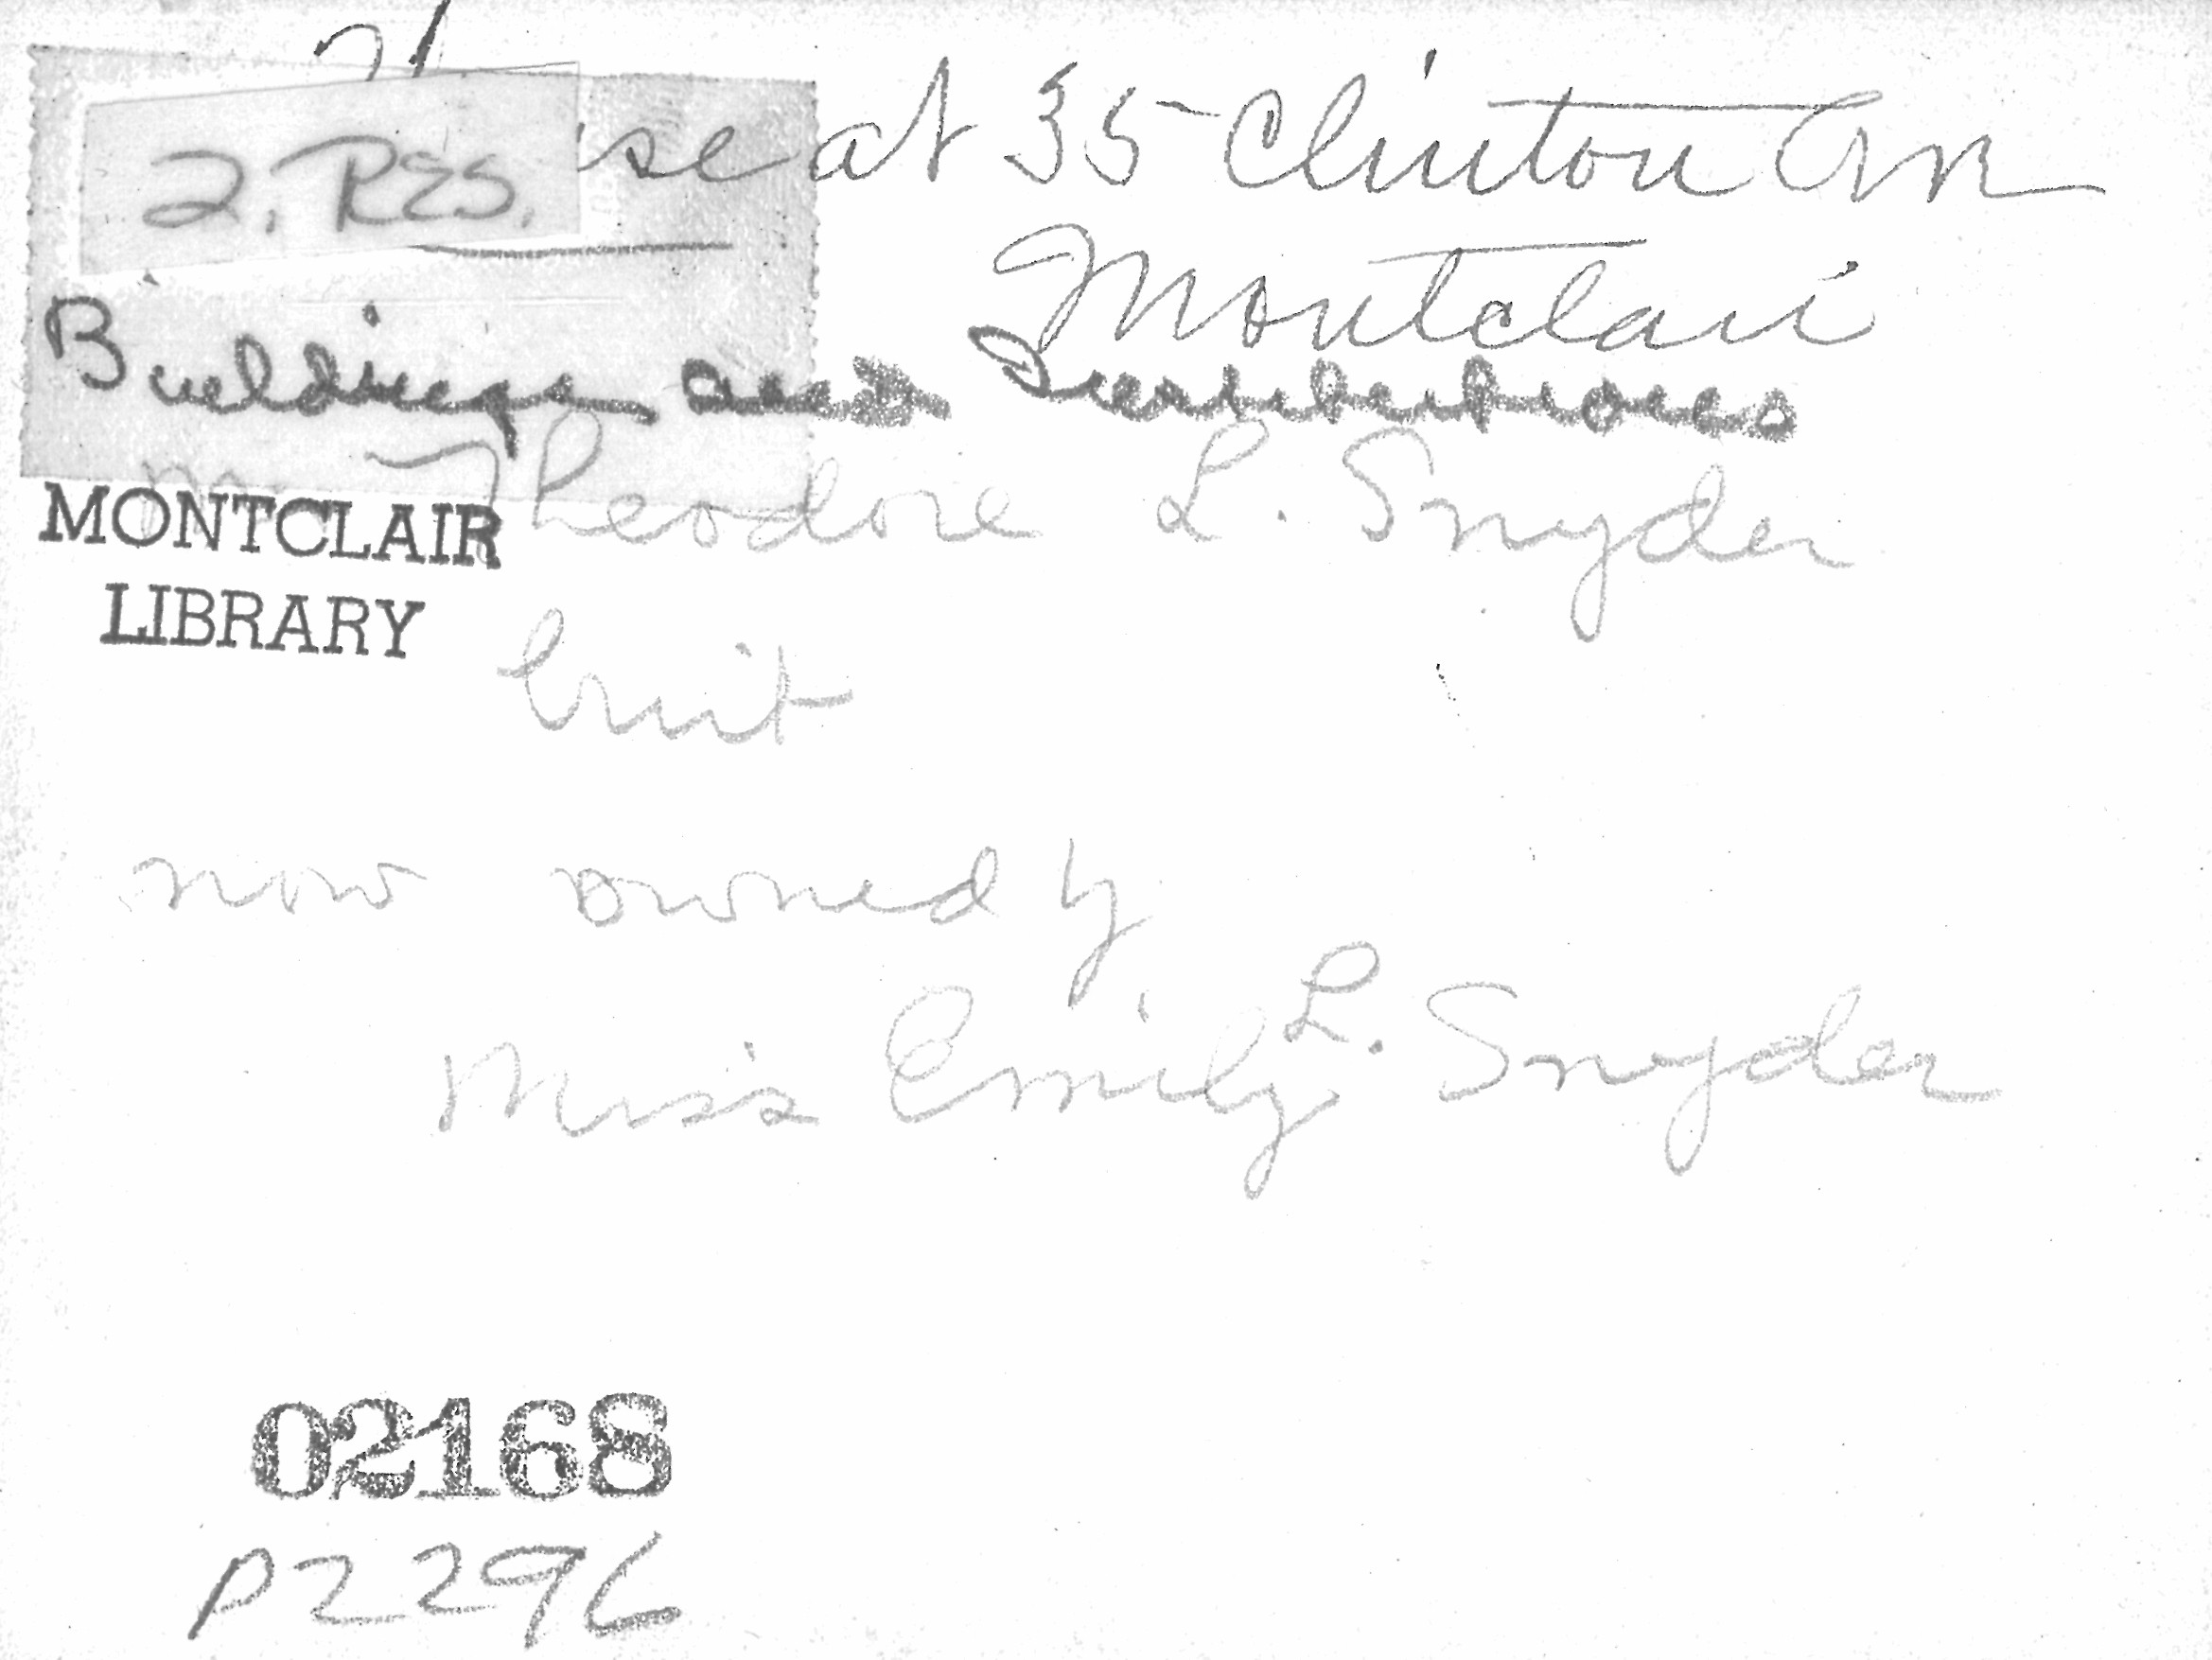 2. RES.
se at 35 Clinton Ave
Montclair
Buildings and Institutions
Theodore L. Snyder
MONTCLAIR
LIBRARY
built
now owned by
Miss Emily L. Snyder
02168
P2296